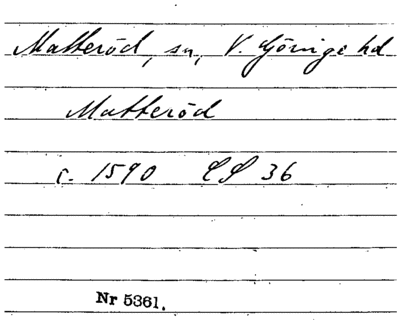 Matteröd, sn, V. Göinge hd
Matteröd
c. 1590 LS 36
Nr 5361.